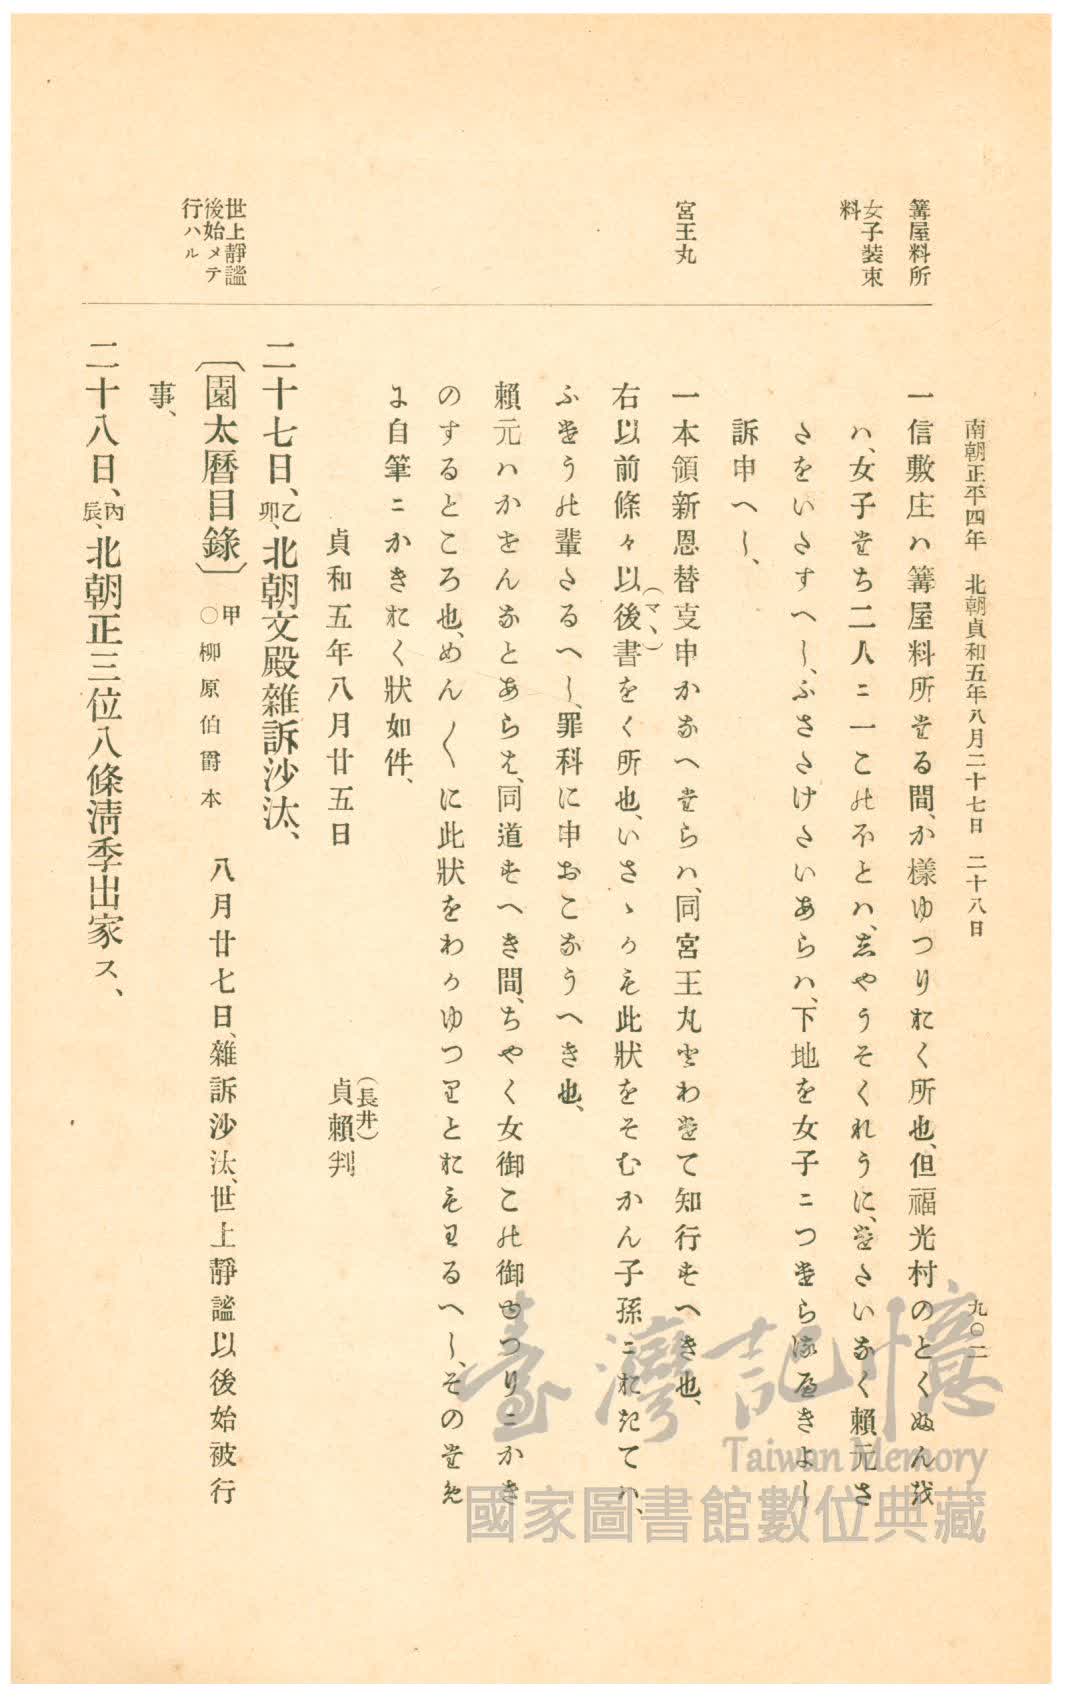 南朝正平四年　北朝貞和五年八月二十七日　二十八日
九〇二
篝屋料所
女子装束
料
宮王丸
世上靜謐
後始メテ
行ハル
一信敷庄ハ篝屋料所たる間、か樣ゆつりおく所也、但福光村のとくぬん越
ハ、女子たち二人ニ一この不とハ、志やうそくれうに、たさいなく賴元さ
さをいさすへし、ふささけさいあらハ、下地を女子ニつたら
訴申へし、
一本領新恩替事申かなへたらハ、同宮王丸もわたて知行すへき也、
右以前條々以後書をく所也、いさゝかも此狀をそむかん子孫ニおきてハ、
(マヽ)
ふたうの輩さるへし、罪科に申おこなうへき也、
賴元ハかをんなとあらえ、同道すへき間、ちやく女御この御ゆつりニかき
のするところ也、めん〳〵に此狀をわかゆつりとおもりるへし、そのため
に自筆ニかきおく狀如件、
貞和五年八月廿五日
(長井)
貞賴判
二十七日、乙卯、北朝文殿雜訴沙汰、
〔園太曆目錄〕甲〇柳原伯爵本　八月廿七日、雜訴沙汰、世上靜謐以後始被行
事、
二十八日、丙辰、北朝正三位八條淸季出家ス、
臺灣記憶
Taiwan Memory
國家圖書館數位典藏